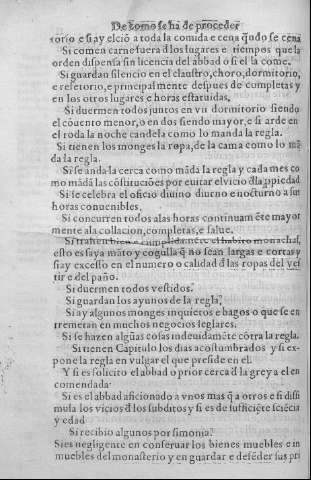 De como se ha de proceder
torio e si ay elciō a toda la comida e cena q̄ndo se cena
Si comen carne fuera d̄ los lugares e tiempos que la
orden dispensa sin licencia del abbad o si el la come.
Si guardan silencio en el claustro, choro, dormitorio,
e refetorio, e principalmente despues de completas y
en los otros lugares e horas estatuidas,
Si duermen todos juntos en vn dormitorio siendo
el cōuento menor, o en dos siendo mayor, e si arde en
el toda la noche candela como lo manda la regla.
Si tienen los monges la ropa, de la cama como lo mā
da la regla.
Si se anda la cerca como māda la regla y cada mes co
mo mādā las cōstituciōes por euitar el vicio d̄la ꝓpiedad
Si se celebra el oficio diuino diurno e nocturno a sus
horas conuenibles.
Si concurren todos alas horas continuamēte mayor
mente ala collacion, completas, e salue.
Si trahen bien e cumplidamēte el habito monachal,
esto es saya māto y cogulla q̄ no sean largas e cortas y
si ay excesso en el numero o calidad d̄ las ropas del ves
tir e del paño.
Si duermen todos vestidos.
Si guardan los ayunos de la regla,
Si ay algunos monges inquietos e bagos o que se en
tremeran en muchos negocios seglares.
Si se hazen algūas cosas indeuidamēte cōtra la regla.
Si tienen Capitulo los dias acostumbrados y si ex-
pone la regla en vulgar el que preside en el.
Y si es solicito el abbad o prior cerca d̄ la grey a el en
comendada·
Si es el abbad aficionado a vnos mas q̄ a otros e si dissi
mula los vicios d̄ los subditos y si es de suficiēte sciēcia
y edad
Si recibio algunos por simonia.
Si es negligente en conseruar los bienes muebles e in
muebles del monasterio y en guardar e defēder sus pri